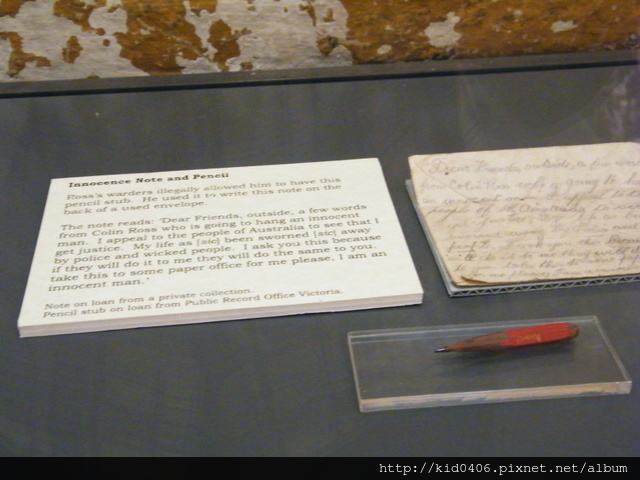 Innocence Note and Pencil
Ross's warders illegally allowed him to have this
pencil stub. He used it to write this note on the
back of a used envelope.
The note reads: 'Dear Friends, outside, a few words
from Colin Ross who is going to hang an innocent
man. I appeal to the people of Australia to see that I
get justice. My life as [sic] been sworned [sic] away
by police and wicked people. I ask you this because
if they will do it to me they will do the same to you.
take this to some paper office for me please, I am an
innocent man.'
Note on loan from a private collection.
Pencil stub on loan from Public Record Office Victoria.
Dear Friends, outside, a few words
from Colin Ross who is going
http://kid0406.pixnet.net/album